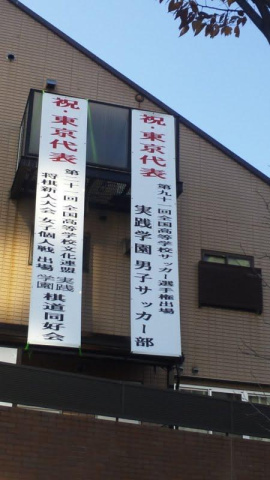 祝・東京代表
第九十一回全国高等学校サッカー選手権出場
実践学園 男子サッカー部
祝・東京代表
第二十一回全国高等学校文化連盟
将棋新人大会 女子個人戦 出場
実践学園 棋道同好会